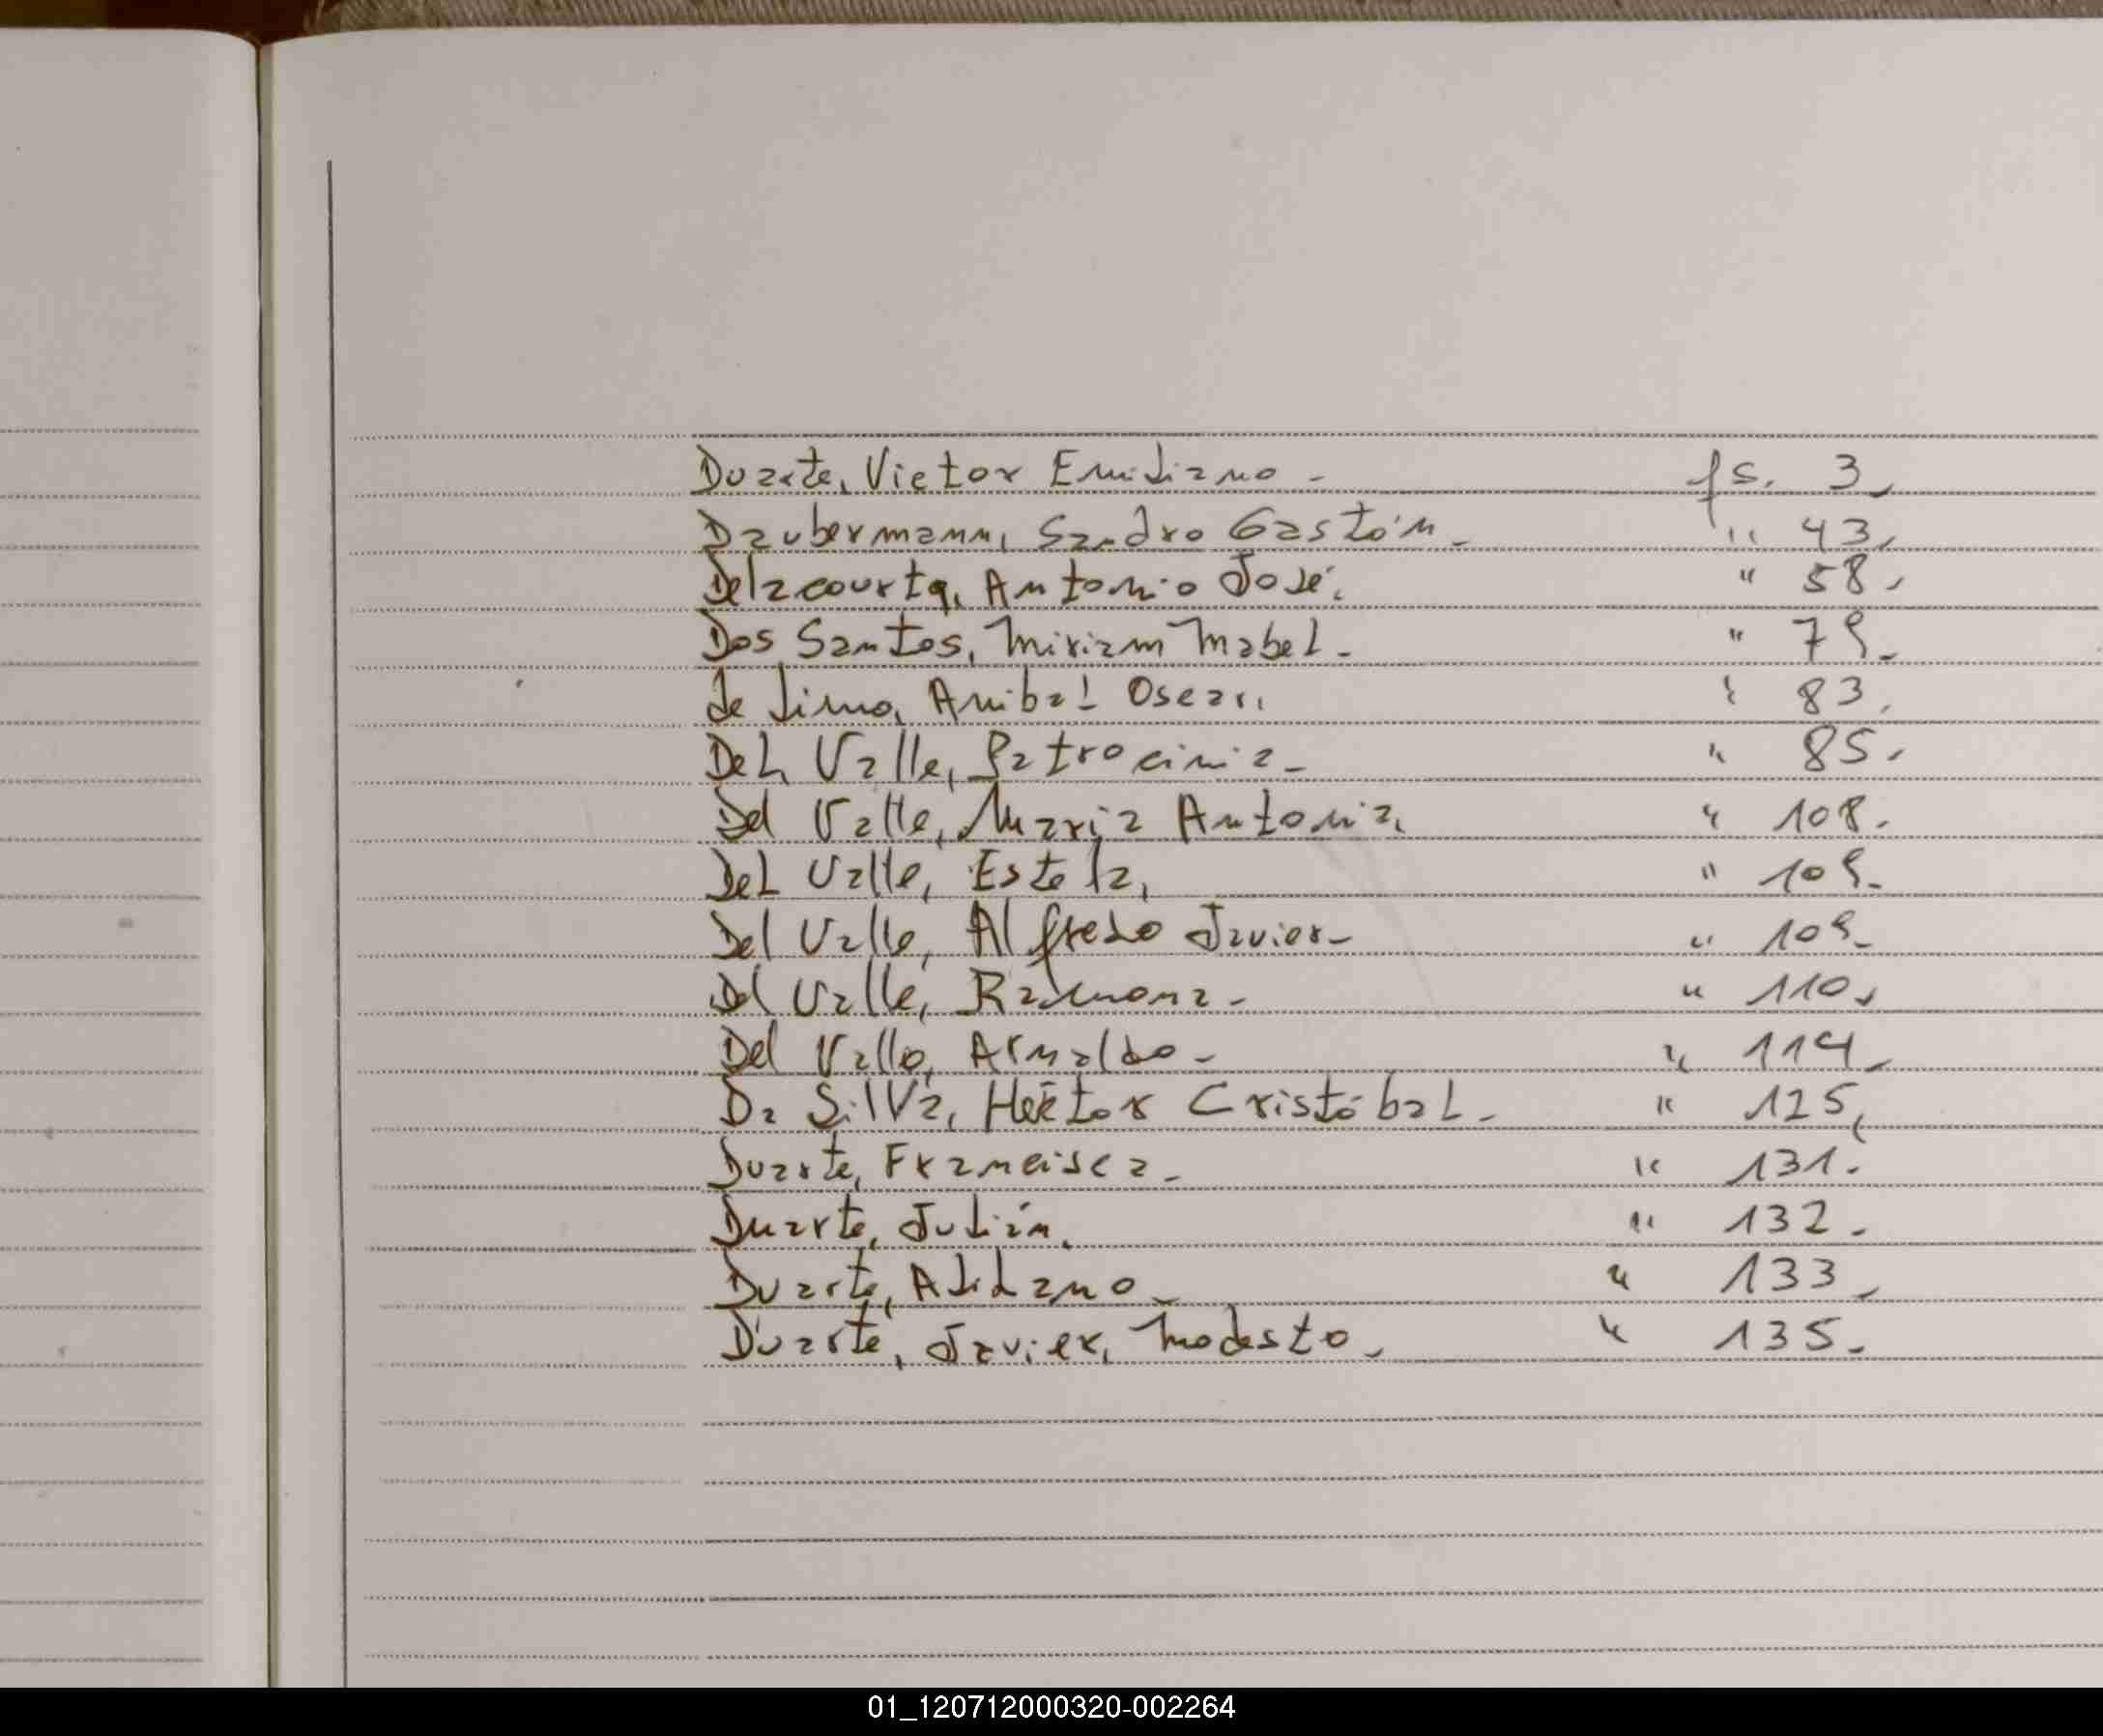 Duarte, Victor Emiliano - fs. 3.
Daubermann, Sandro Gastón - " 43.
Delacourt, Antonio José. " 58.
Dos Santos, Miriam Mabel - " 79.
de Lima, Anibal Oscar. " 83.
Del Valle, Patrocinia - " 85.
Del Valle, Maria Antonia. " 108.
Del Valle, Estela. " 109.
Del Valle, Alfredo Javier - " 109.
Del Valle, Ramona - " 110.
Del Valle, Arnaldo - " 114.
Da Silva, Héctor Cristóbal - " 125.
Duarte, Francisca - " 131.
Duarte, Julián. " 132.
Duarte, - " 133.
Duarte, Javier, Modesto. " 135.
01_120712000320-002264